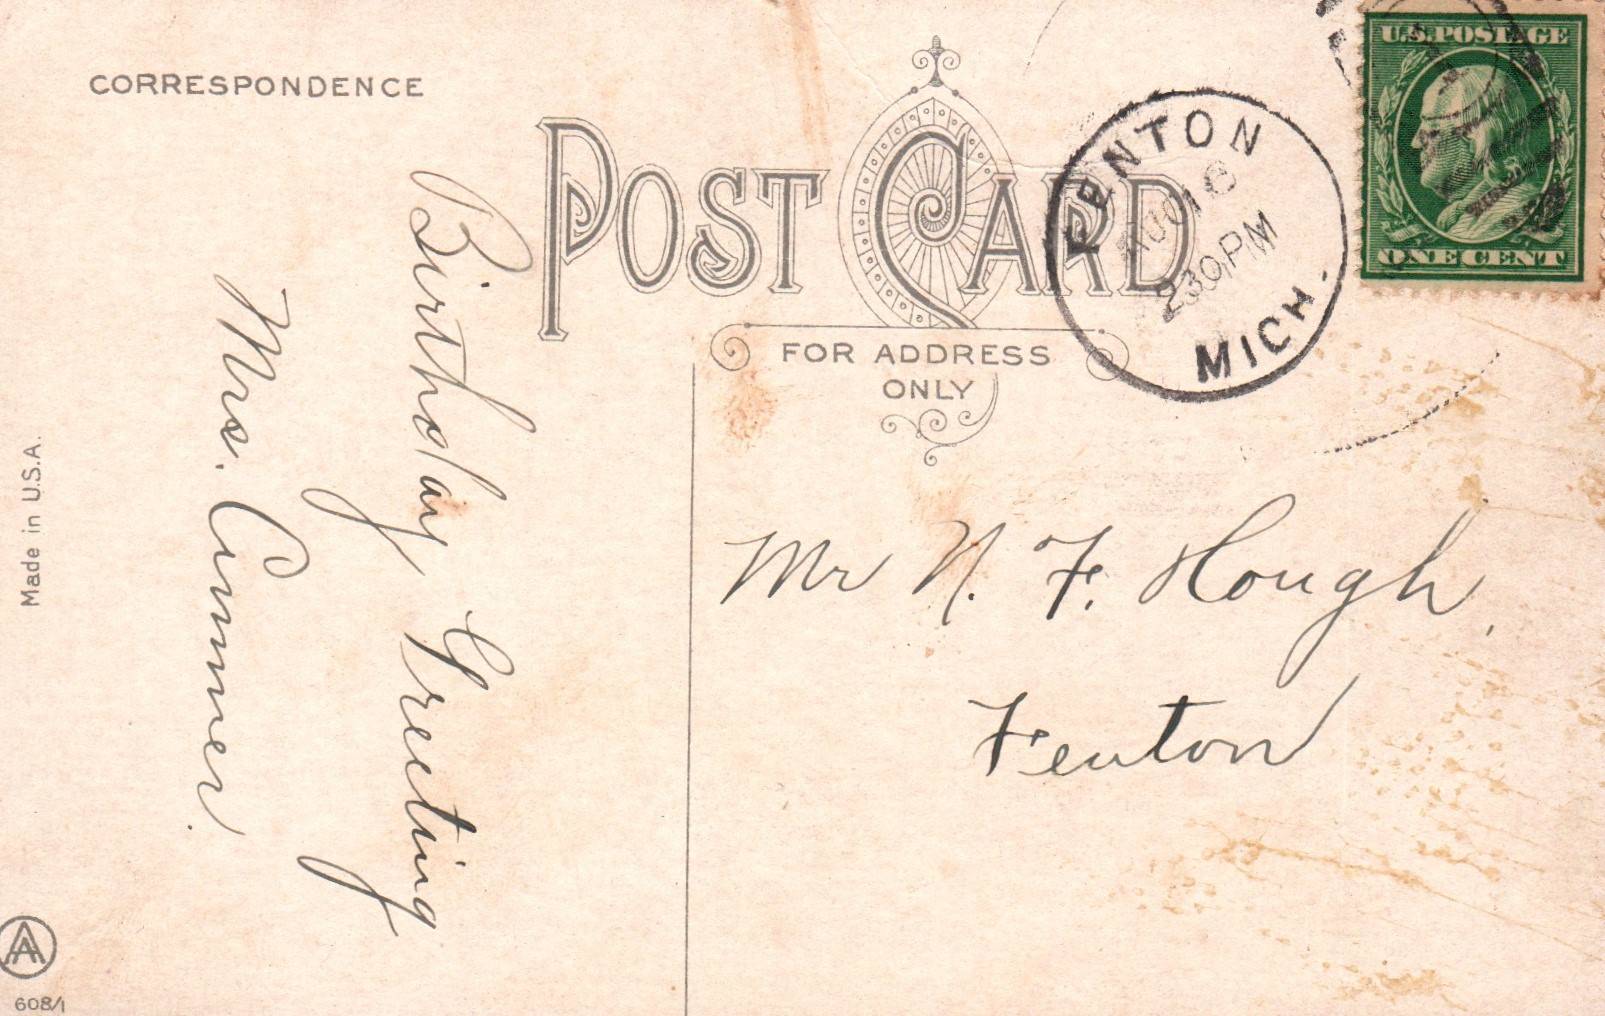 CORRESPONDENCE
POST CARD
FOR ADDRESS
ONLY
FENTON
AUG 16
230PM
MICH.
U.S.POSTAGE
ONE CENT
Birthday Greeting
Mrs. Cummer.
Mr N. F. Hough,
Fenton
Made in U.S.A.
AA
608/1